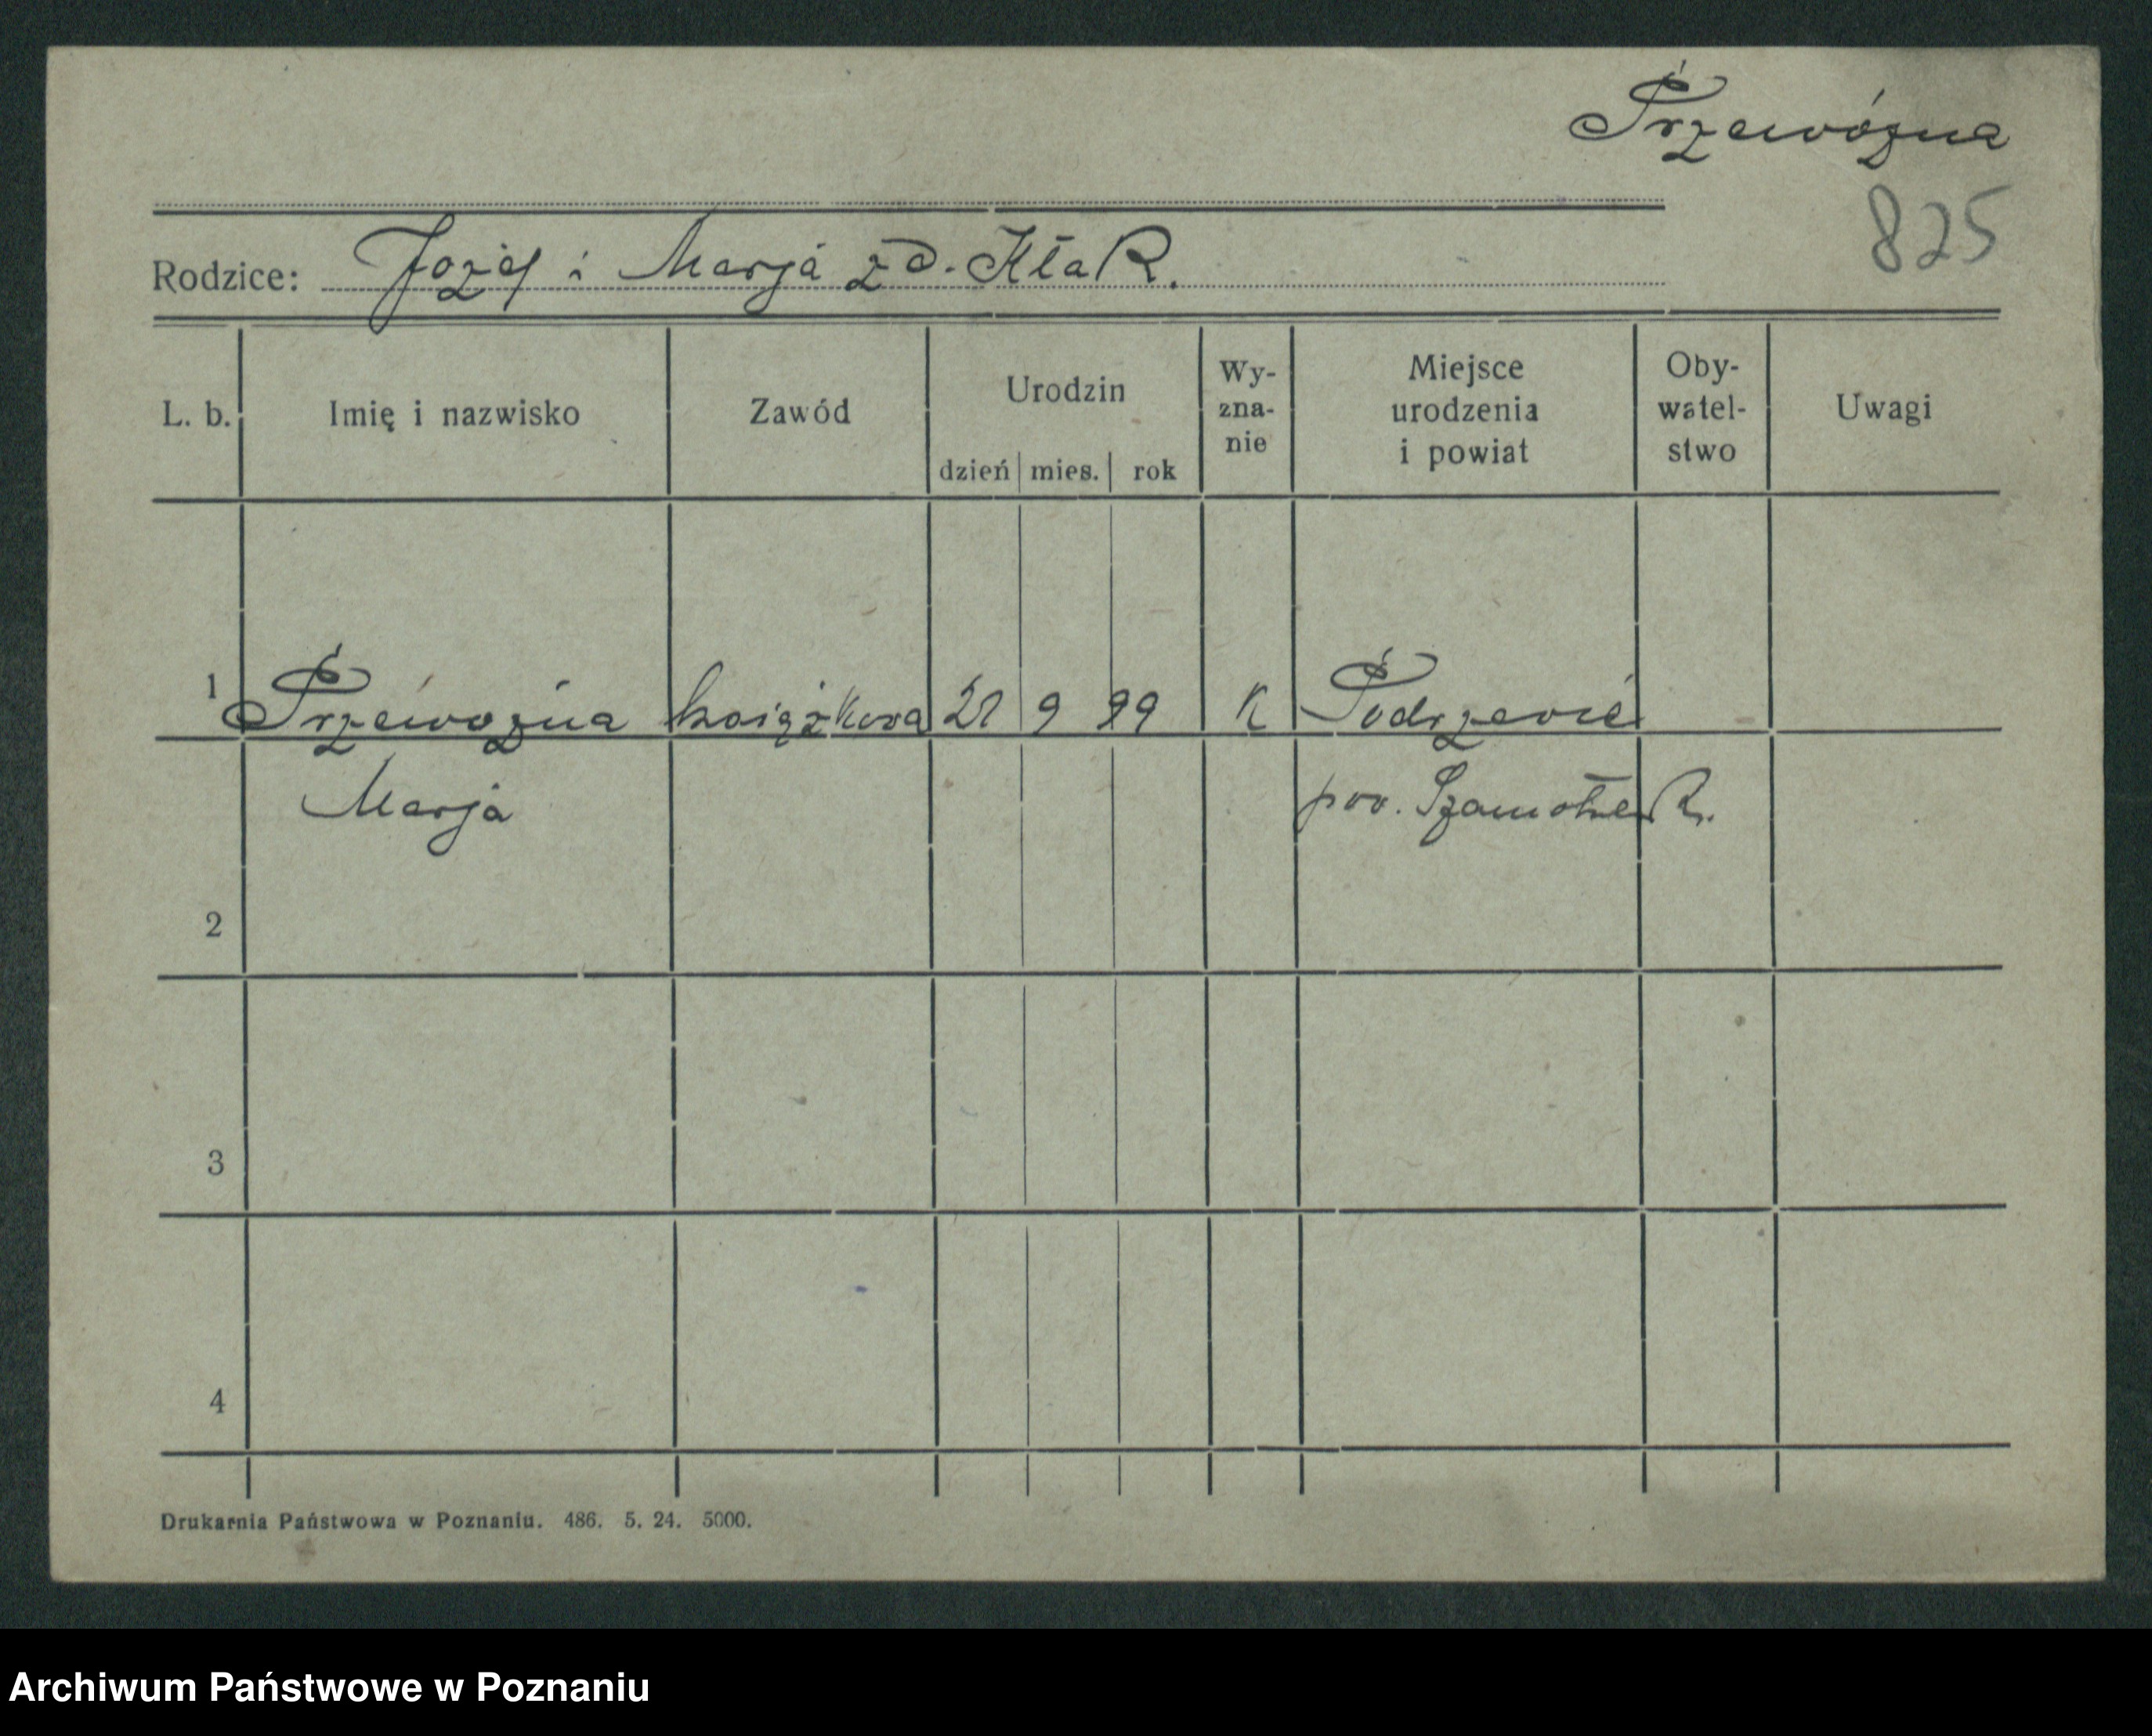 Przewóźna
825
Rodzice: Józef i Marja zd. Kłak.
L. b. Imię i nazwisko Zawód Urodzin dzień mies. rok Wy-zna-nie Miejsce urodzenia i powiat Oby-watel-stwo Uwagi
1 Przewoźna książkowa 9 99 K Podrzewie
Marja pow. Szamotuł.
2
3
4
Drukarnia Państwowa w Poznaniu. 486. 5. 24. 5000.
Archiwum Państwowe w Poznaniu